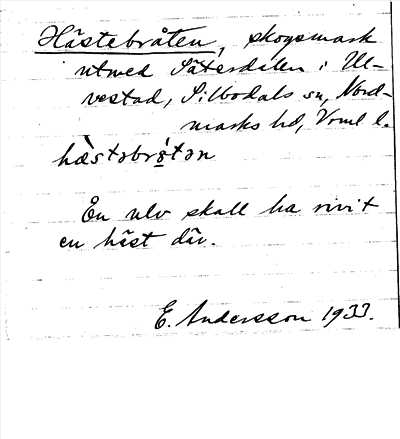 Hästebråten, skogsmark
utmed Säterdalen i Ul-
vestad, Silbodals sn, Nord-
marks hd, Vrml l.
hæ̀stəbrǫ́tən
En ulv skall ha rivit
en häst där.
E. Andersson 1933.